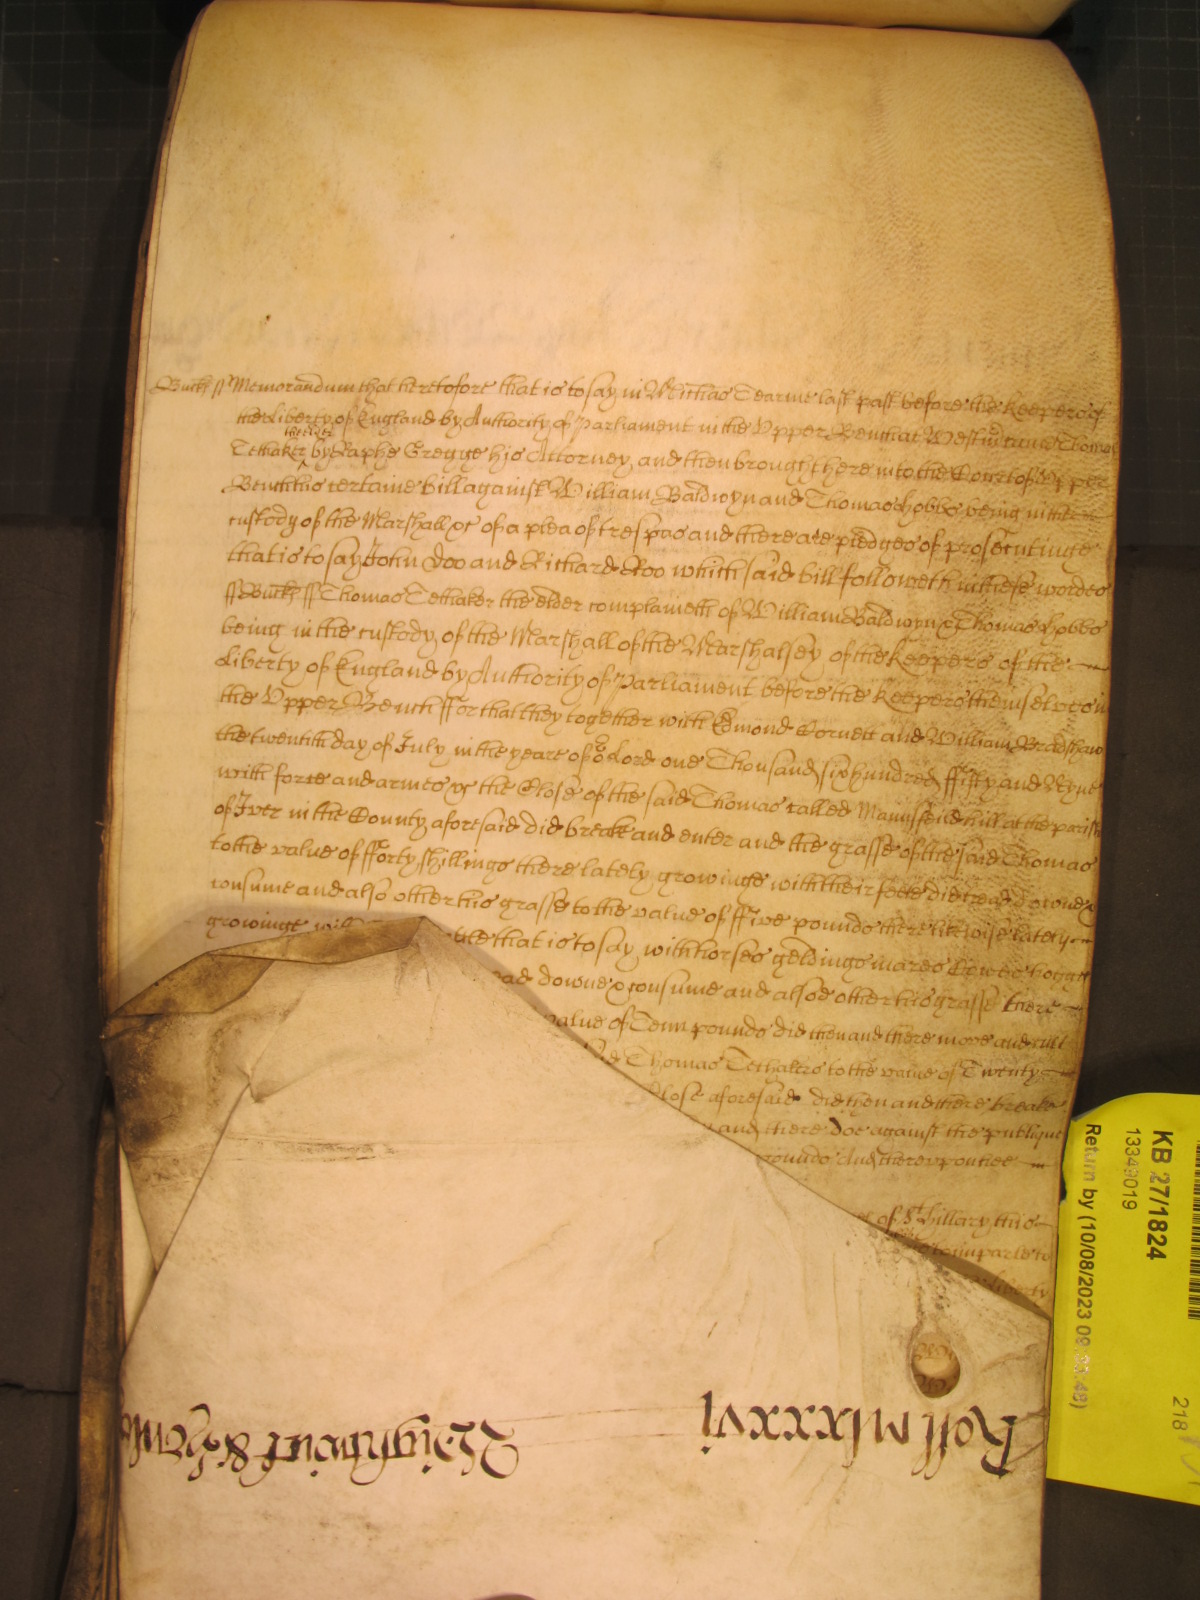 Buck ss Memorandum that heretofore that is to say in Michas Tearme last past before the Keepers of
the Liberty of England by Authority of Parliament in the Upper Bench at Westm came Thomas
the elder
Tethaker by Raphe Gregge his Attorney and then brought here into the Court of Upper
Bench his certaine bill against William Baldwyn and Thomas Hobbs being in the
custody of the Marshall &c of a plea of trespas and there are pledges of prosecutinge
that is to say John Doo and Richard Roo which said bill followeth in these wordes
ss Buck ss Thomas Tethaker the elder complaineth of William Baldwyn & Thomas Hobbs
being in the custody of the Marshall of the Marshalsey of the Keepers of the
Liberty of England by Authority of Parliament before the Keepers themselves in
the Upper Bench ffor that they together with Edmond Cornett and William Bradshaw
the twentith day of July in the yeare of or Lord one Thousand six hundred ffifty and Nyne
with force and armes &c the Close of the said Thomas called hill at the parish
of Iver in the County aforesaid did breake and enter and the grasse of the said Thomas
to the value of fforty shillings there lately growinge with their feete did tread downe &
consume and also other his grasse to the value of ffive pounds there likewise lately
growinge that is to say with horses geldings mares Cowes hoggs
ead downe & consume and alsoe other his grasse there
value of Tenn pounds did then and there mowe and
Thomas Tethakers to the value of Twenty
Close aforesaid did then and there breake
and there doe against the publique
pounds And thereupon hee
of St Hillary this
to imparle to
liberty
Roll mlxxxvi
KB 27/1824
13349019
Return by (10/08/2023 09:
218